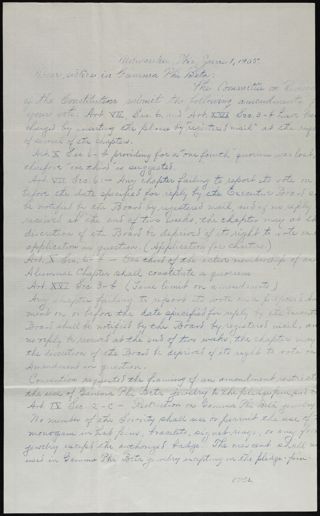 Milwaukee, Wis, June 1, 1905
Dear Sisters in Gamma Phi Beta:
The Committee on Revision
of the Constitution submit the following amendments
yours vote. Art. VII, Sec 6, and Art XXVI Sec 3-b have been
changed by inserting the phrase by "registered mail" at the
of service of the chapters.
Art X Sec 6-b providing for a "one fourth" quorum was lost,
therefore "one third" is suggested.
Art. VII Sec 6 — Any chapter failing to report its vote on
before the date specified for reply by the Executive Board
be notified by the Board by registered mail, and if no reply
received at the end of two weeks, the chapter may at the
discretion of the Board be deprived of its right to vote on
application in question. (Application for charter)
Art. X Sec. 6-b — One third of the active membership of an
Alumnae Chapter shall constitute a quorum
Art. XXVI Sec 3-b (Time limit on amendments)
Any chapter failing to report its vote on a proposed
ment on or before the date specified for reply by the Executive
Board shall be notified by the Board by registered mail, and
no reply is received at the end of two weeks, the chapter may
the discretion of the Board be deprived of its right to vote on
Amendment in question.
Convention requested the framing of an amendment
the use of Gamma Phi Beta jewelry to the pledge pin,
Art IX Sec. 2-c — Restriction on Gamma Phi Beta jewelry
No member of the Sorority shall use or permit the use of
monogram in hat pins, bracelets, signet rings, or any
jewelry except the authorized badge. The crescent shall
used in Gamma Phi Beta jewelry excepting in the pledge-pin
over